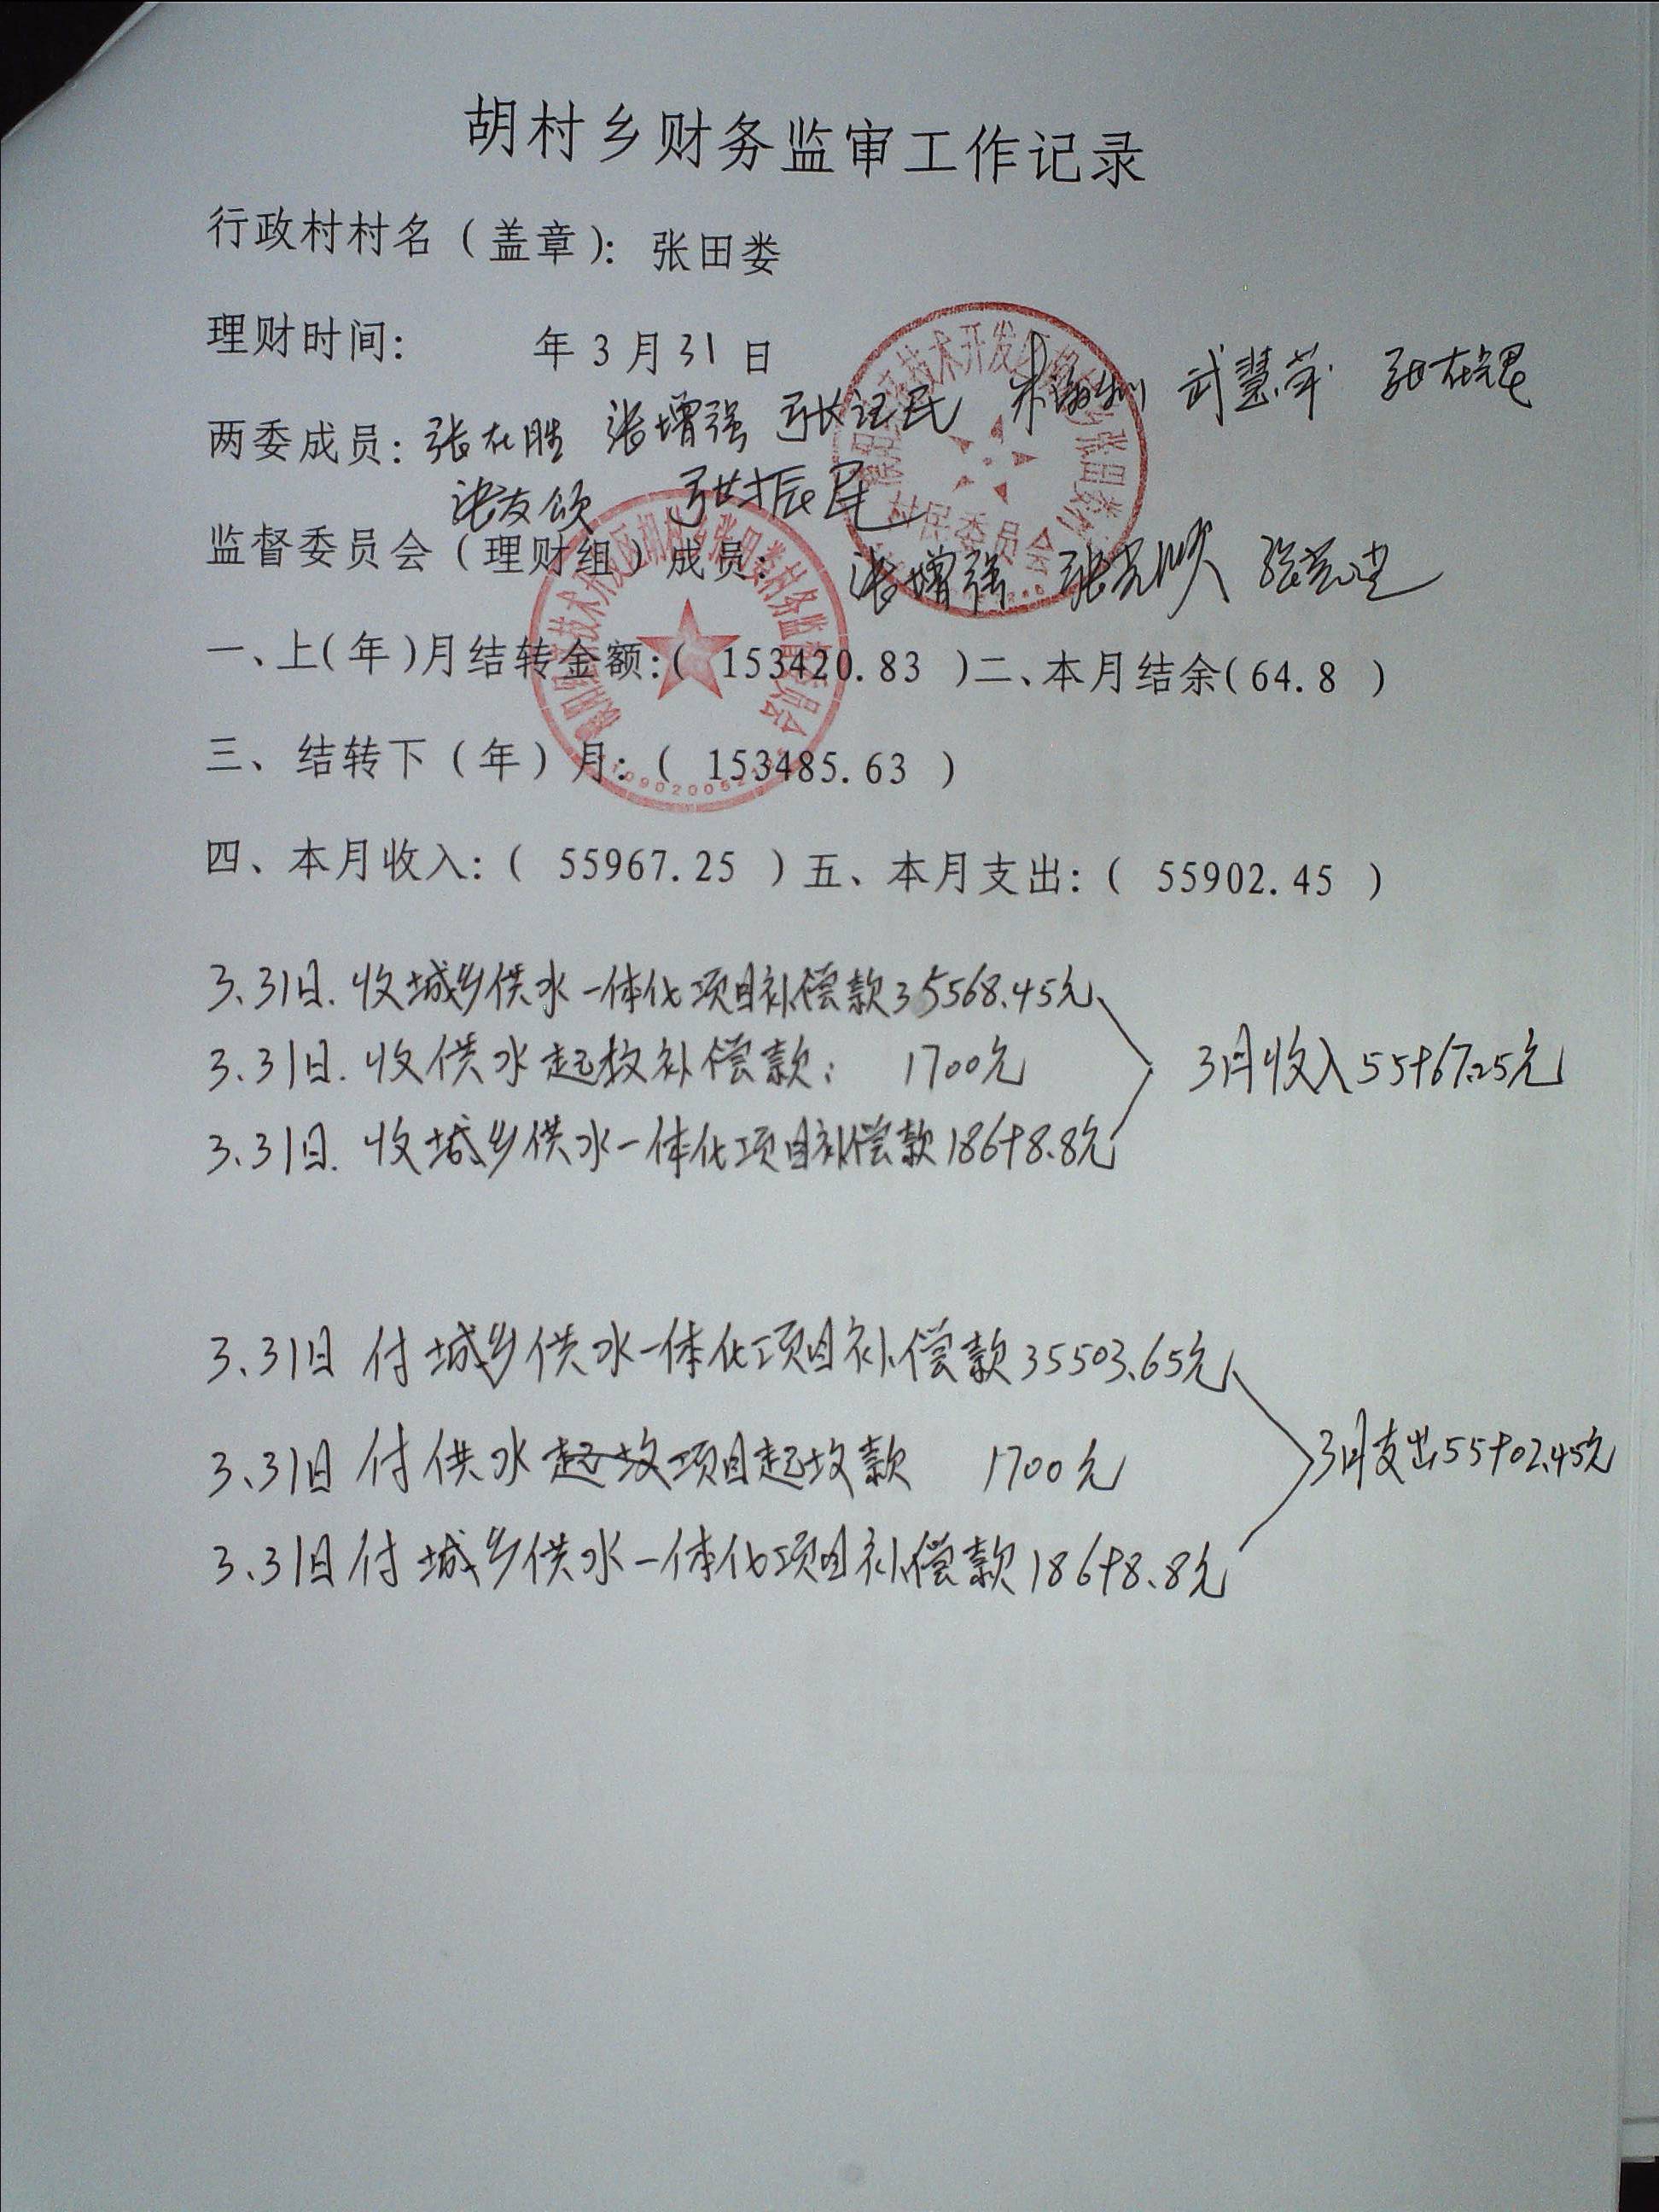 胡村乡财务监审工作记录
行政村村名（盖章）：张田娄
理财时间： 年3月31日
两委成员：张在胜 张增强 张证民 武慧萍 张在锟
张友颂 张振民
监督委员会（理财组）成员： 张增强 张克顺
一、上(年)月结转金额：( 153420.83 )二、本月结余(64.8 )
三、结转下（年）月：( 153485.63 )
四、本月收入：( 55967.25 )五、本月支出：( 55902.45 )
3.31日.收城乡供水一体化项目补偿款35568.45元
3.31日.收供水起坟补偿款： 1700元
3月收入55967.25元
3.31日.收城乡供水一体化项目补偿款18698.8元
3.31日付城乡供水一体化项目补偿款35503.65元
3.31日付供水起坟项目起坟款 1700元
3月支出55902.45元
3.31日付城乡供水一体化项目补偿款18698.8元
村民委员会